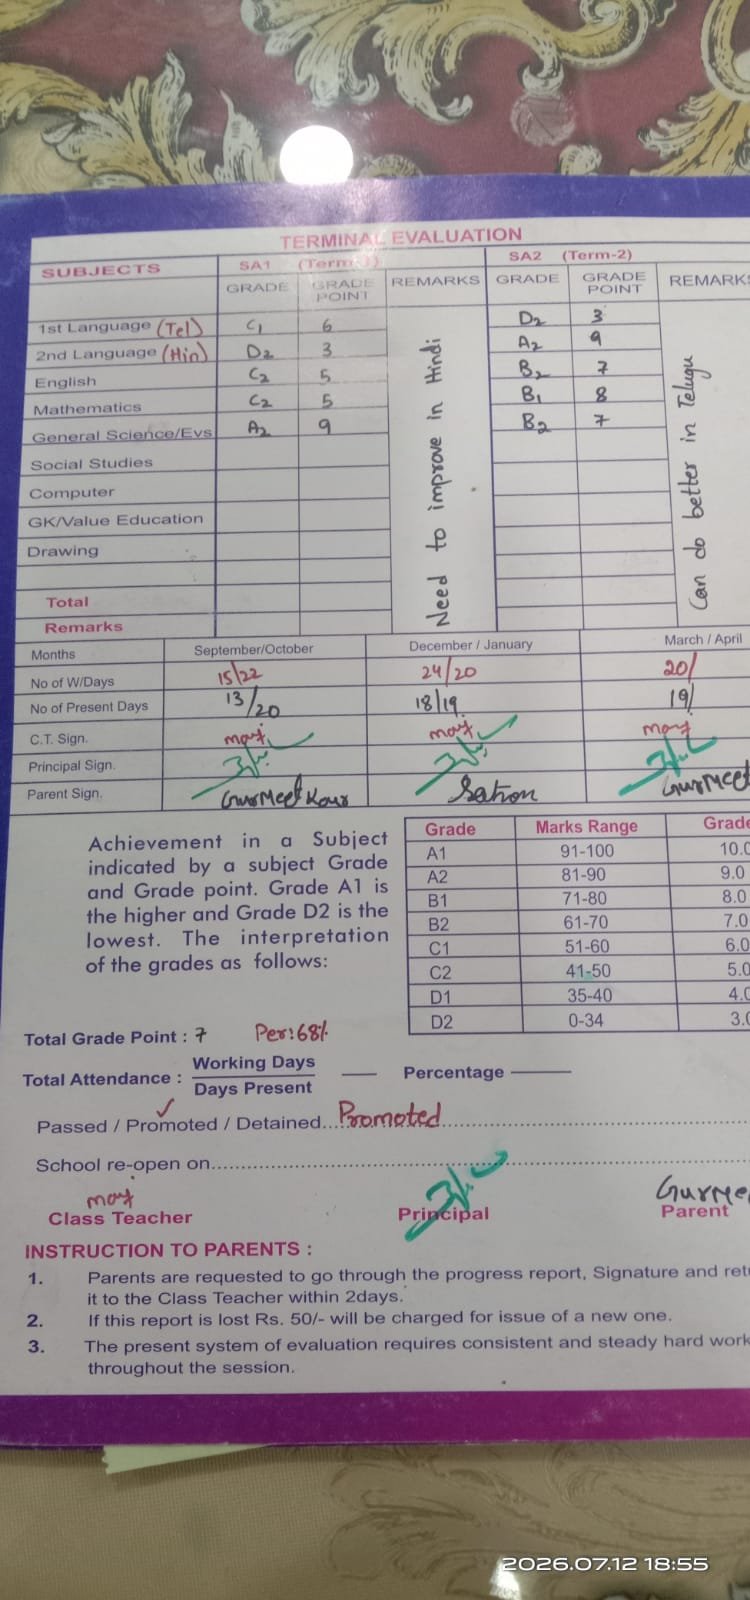 TERMINAL EVALUATION
SUBJECTS SA1 (Term-1) SA2 (Term-2)
GRADE GRADE POINT REMARKS GRADE GRADE POINT REMARKS
1st Language (Tel) C1 6 D2 3
2nd Language (Hin) D2 3 A2 9
English C2 5 B2 7
Mathematics C2 5 B1 8
General Science/Evs A2 9 B2 7
Social Studies
Computer
GK/Value Education
Drawing
Need to improve in Hindi
Can do better in Telugu
Total
Remarks
Months September/October December / January March / April
No of W/Days 15/22 24/20 20/
No of Present Days 13/20 18/19 19/
C.T. Sign.
Principal Sign.
Parent Sign. GurMeet Kour GurMeet
Achievement in a Subject
indicated by a subject Grade
and Grade point. Grade A1 is
the higher and Grade D2 is the
lowest. The interpretation
of the grades as follows:
Grade Marks Range Grade
A1 91-100 10.0
A2 81-90 9.0
B1 71-80 8.0
B2 61-70 7.0
C1 51-60 6.0
C2 41-50 5.0
D1 35-40 4.0
D2 0-34 3.0
Total Grade Point : 7 Per:68%
Total Attendance : Working Days
Days Present Percentage
Passed / Promoted / Detained....Promoted
School re-open on
Class Teacher Principal Parent
INSTRUCTION TO PARENTS :
1. Parents are requested to go through the progress report, Signature and
it to the Class Teacher within 2days.
2. If this report is lost Rs. 50/- will be charged for issue of a new one.
3. The present system of evaluation requires consistent and steady hard work
throughout the session.
2026.07.12 18:55